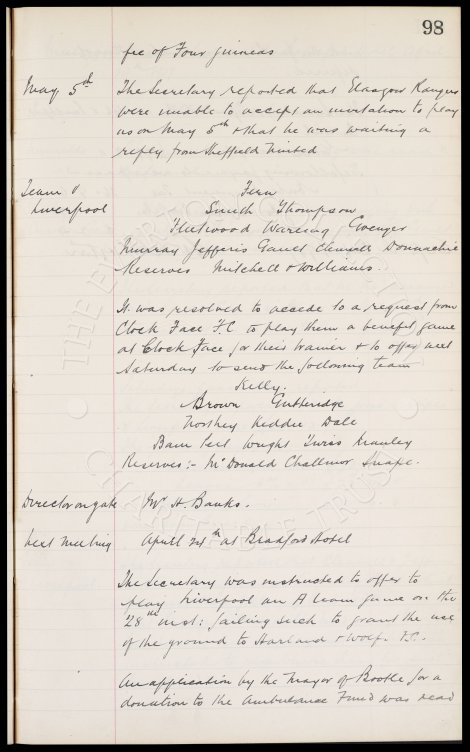 98
fee of Four guineas
May 5th
The Secretary reported that Glasgow Rangers
were unable to accept an invitation to play
us on May 5th & that he was waiting a
reply from Sheffield United
Team v
Liverpool
Fern
Smith Thompson
Fleetwood Wareing Grenyer
Murray Jefferis Gault Clennell Donnachie
Reserves Mitchell & Williams.
It was resolved to accede to a request from
Clock Face F.C. to play them a benefit game
at Clock Face for their trainer & to offer next
Saturday to send the following team
Kelly.
Brown Gutteridge
Northey Keddie Dale
Bam Peet Wright Twiss Stanley
Reserves:- McDonald Challinor Snape.
Director on gate
Mr H. Banks.
Next Meeting
April 24th at Bradford Hotel
The Secretary was instructed to offer to
play Liverpool an A team game on the
28th inst: failing such to grant the use
of the ground to Harland & Wolf F.C.
An application by the Mayor of Bootle for a
donation to the Ambulance Fund was read
THE EVERTON
CHARITABLE TRUST